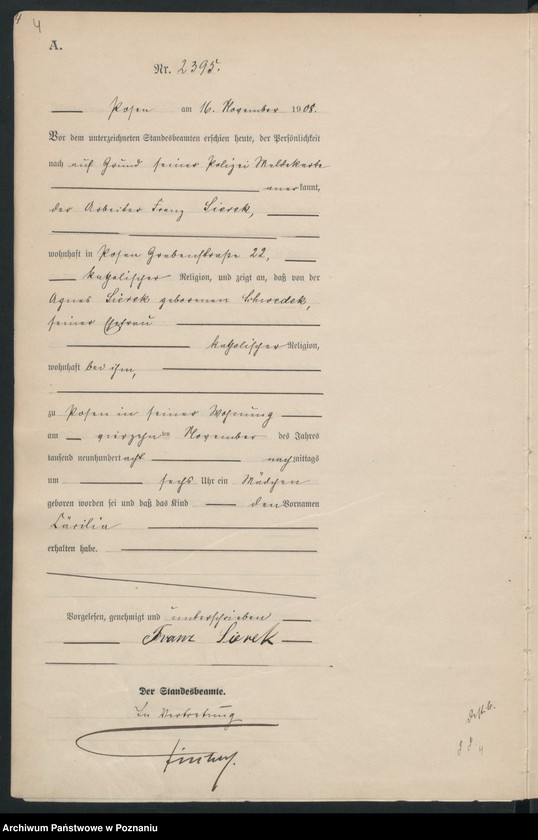 4
A.
Nr. 2395.
Posen am 16. November 1908.
Vor dem unterzeichneten Standesbeamten erschien heute, der Persönlichkeit
nach auf Grund seiner Polizei Meldekarte
anerkannt,
der Arbeiter Franz Sierek,
wohnhaft in Posen Grabenstraße 22,
katholischer Religion, und zeigt an, daß von der
Agnes Sierek geborenen Chwedek,
seiner Ehefrau
katholischer Religion,
wohnhaft bei ihm,
zu Posen in seiner Wohnung
am vierzehnten November des Jahres
tausend neunhundert acht nachmittags
um sechs Uhr ein Mädchen
geboren worden sei und daß das Kind den Vornamen
Cäcilia
erhalten habe.
Vorgelesen, genehmigt und unterschrieben
Franz Sierek
Der Standesbeamte.
In Vertretung
Archiwum Państwowe w Poznaniu